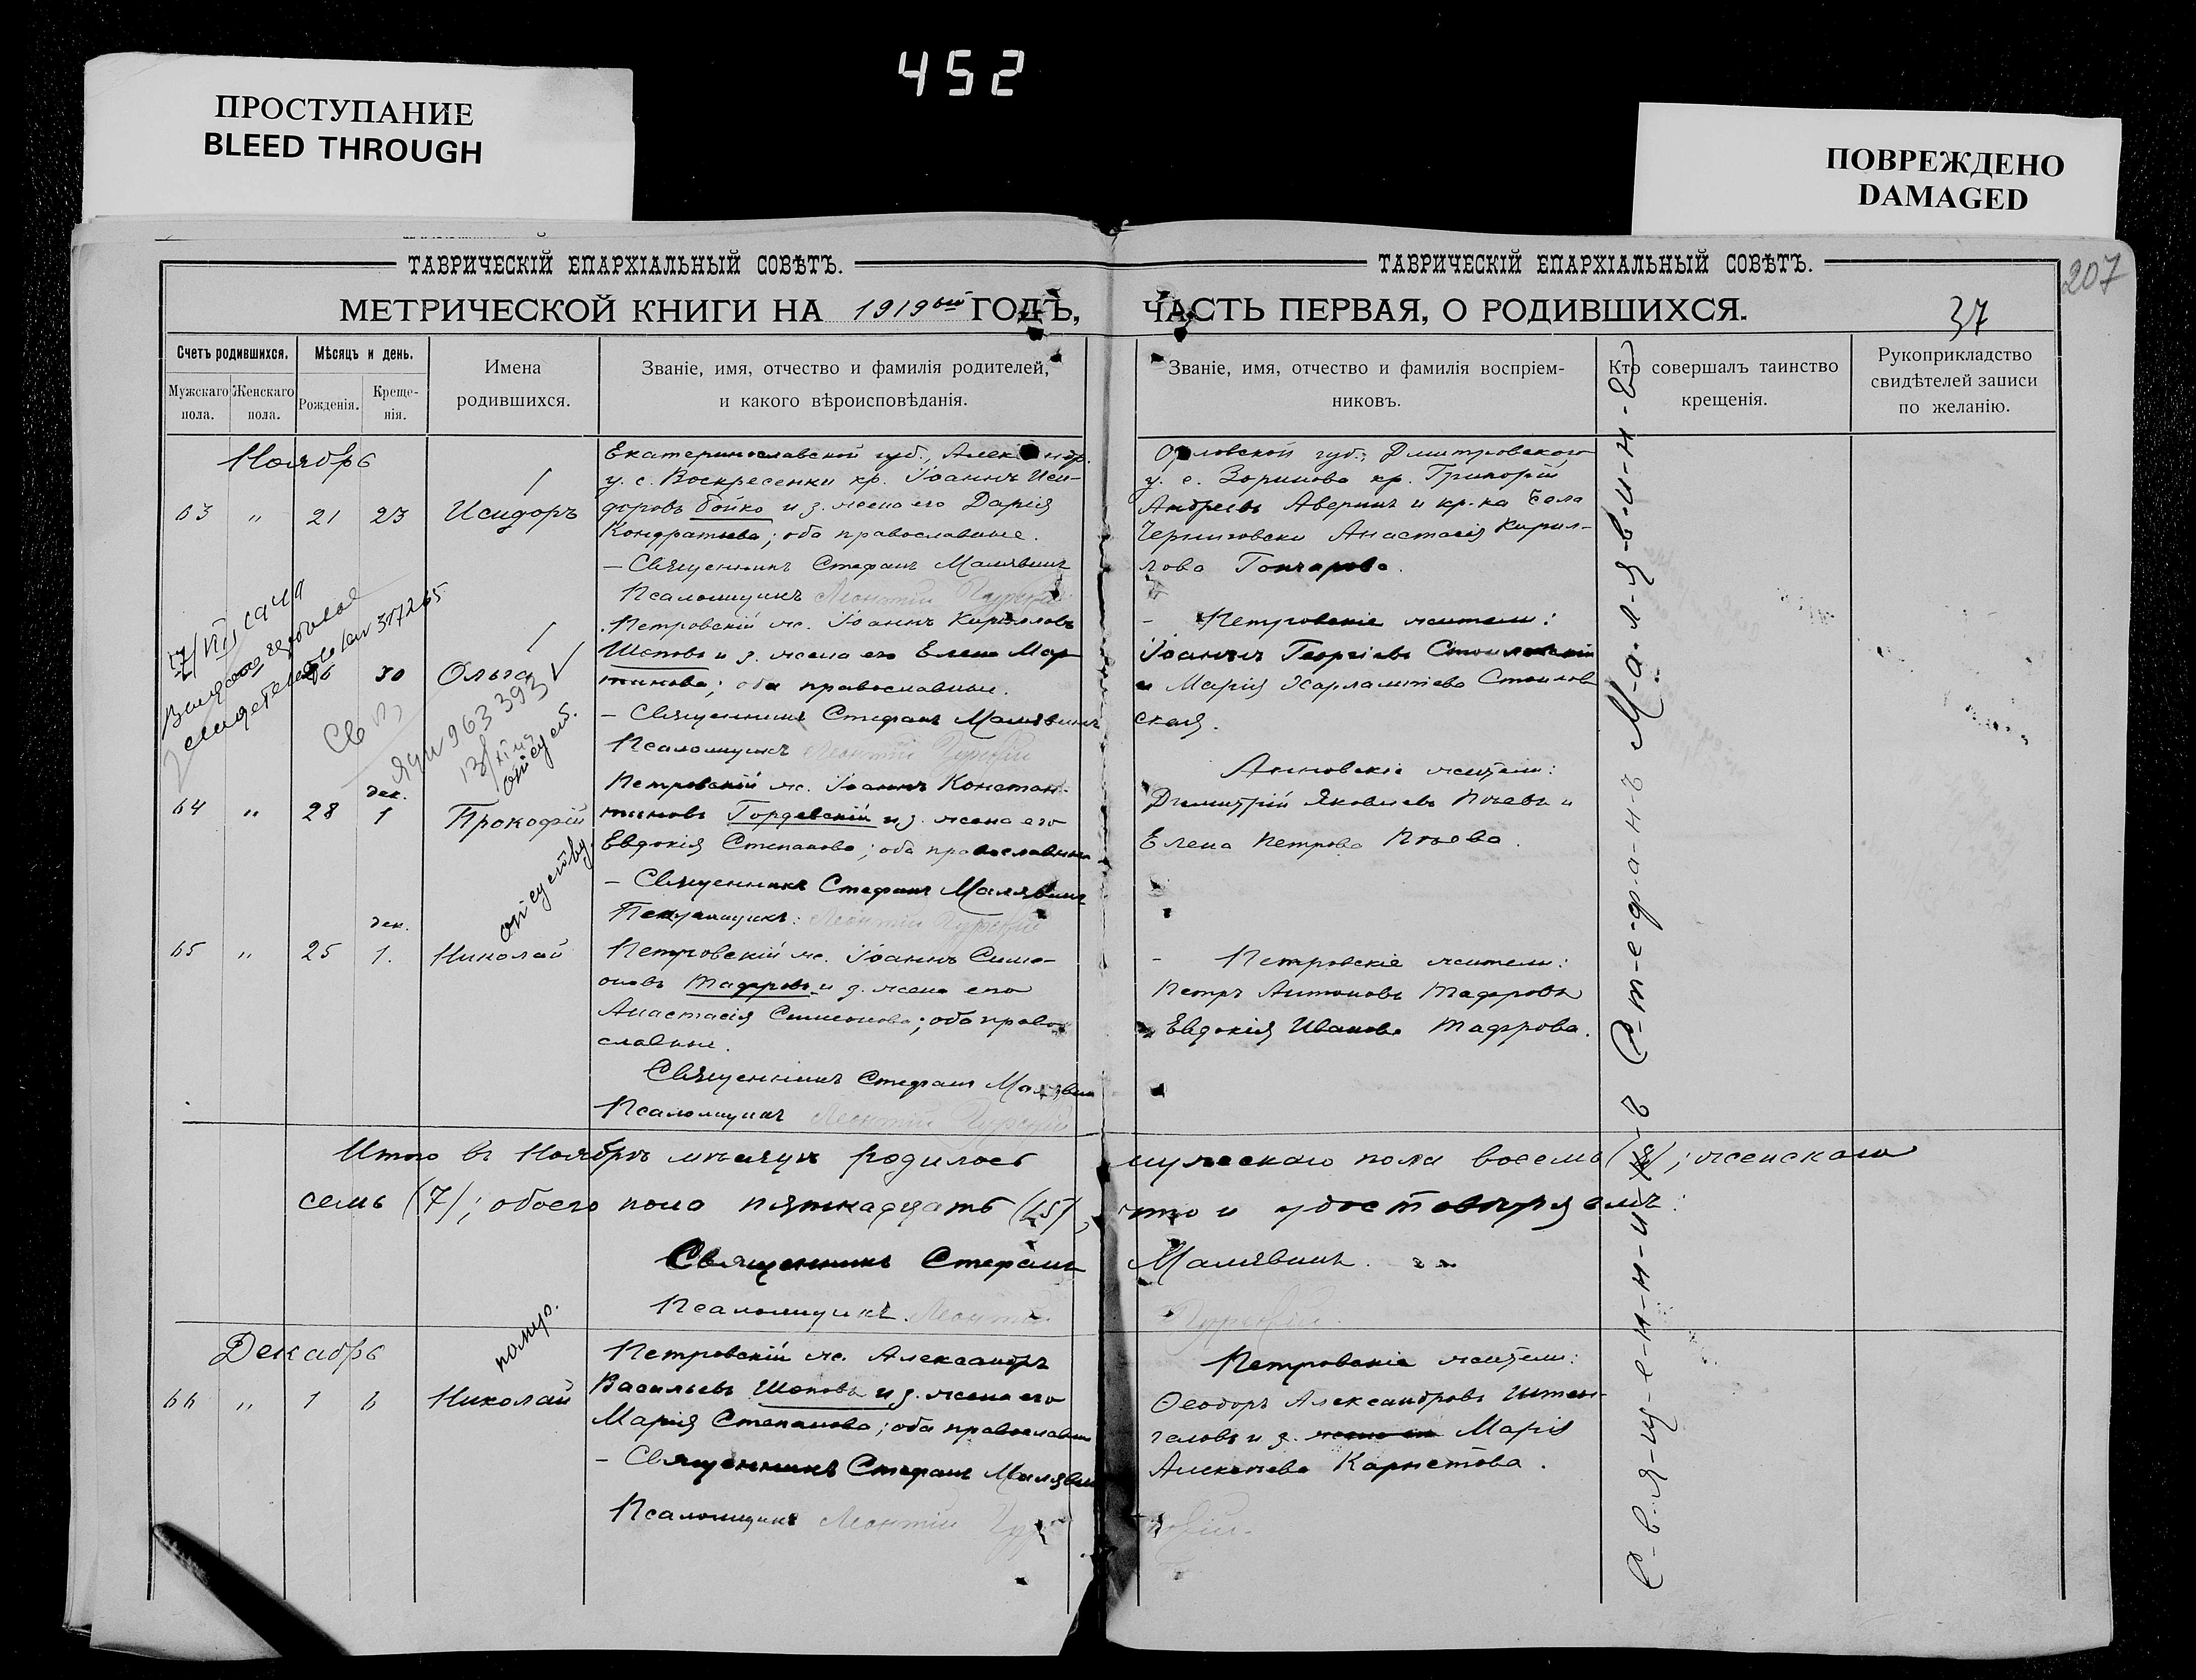 452
ПРОСТУПАНИЕ
BLEED THROUGH
ПОВРЕЖДЕНО
DAMAGED
207
ТАВРИЧЕСКІЙ ЕПАРХІАЛЬНЫЙ СОВѢТЪ.
МЕТРИЧЕСКОЙ КНИГИ НА 1919ый ГОДЪ,
Счетъ родившихся.
Мужскаго пола.
Женскаго пола.
Мѣсяцъ и день.
Рожденія.
Креще-
нія.
Имена
родившихся.
Званіе, имя, отчество и фамилія родителей,
и какого вѣроисповѣданія.
Ноябрь
63 " 21 23 Исидоръ
Екатеринославской губ., Александр.
у. с. Воскресенки кр. Іоаннъ Иси-
доровъ Бойко и з. жена его Дарія
Кондратьева; оба православные.
— Священникъ Стефанъ Малявинъ
Псаломщикъ Леонтій
свидетельство 317265
30 Ольга
963393
Петровскій ж. Іоаннъ Кирилловъ
Шоповъ и з. жена его Елена Мар
тинова; оба православные.
— Священникъ Стефанъ Малявинъ
Псаломщикъ Леонтій
64 " 28 дек. 1 Прокофій
Петровскій ж. Іоаннъ Констан-
тиновъ Гордевскій и з. жена его
Евдокія Степанова; оба православные
— Священникъ Стефанъ Малявинъ
Псаломщикъ: Леонтій
65 " 25 дек. 1. Николай
Петровскій ж. Іоаннъ Симе-
оновъ Тафровъ и з. жена его
Анастасія Симеонова; оба право
славные.
Священникъ Стефанъ Малявинъ
Псаломщикъ Леонтій
Итого въ Ноябрѣ мѣсяцѣ родилось мужескаго пола восемь (8); женскаго
семь (7); обоего пола пятнадцать (15), что и удостовѣряемъ:
Священникъ Стефанъ Малявинъ.
Псаломщикъ Леонтій
Декабрь
помер.
66 " 1 6 Николай
Петровскій ж. Александръ
Васильевъ Шоповъ и з. жена его
Марія Степанова; оба православные
— Священникъ Стефанъ Малявинъ
Псаломщикъ Леонтій
ТАВРИЧЕСКІЙ ЕПАРХІАЛЬНЫЙ СОВѢТЪ.
ЧАСТЬ ПЕРВАЯ, О РОДИВШИХСЯ.
37
Званіе, имя, отчество и фамилія воспріем-
никовъ.
Кто совершалъ таинство
крещенія.
Рукоприкладство
свидѣтелей записи
по желанію.
Орловской губ., Дмитровского
у. с. Зоринова кр. Григорій
Андреевъ Аверинъ и кр-ка села
Черниговки Анастасія Кирил-
лова Гончарова.
— Петровскіе жители:
Іоаннъ Георгіевъ Стоиловскій
и Марія Харлампіева Стоилов
ская.
Анновскіе жители:
Димитрій Яковлевъ и
Елена Петрова
— Петровскіе жители:
Петръ Антоновъ Тафровъ
Евдокія Иванова Тафрова.
Петровскіе жители:
Ѳеодоръ Александровъ Штен-
геловъ и з. жена его Марія
Алексеева
С-в-я-щ-е-н-н-и-к-ъ С-т-е-ф-а-н-ъ М-а-л-я-в-и-н-ъ